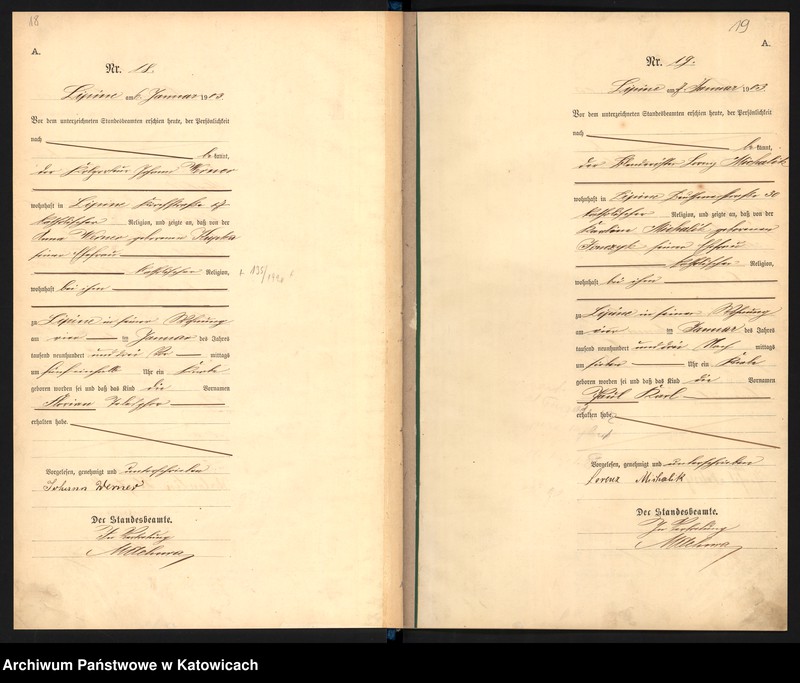 18
A.
Nr. 18.
Lipine am 6. Januar 1903.
Vor dem unterzeichneten Standesbeamten erschien heute, der Persönlichkeit
nach
be kannt,
der Johann Werner
wohnhaft in Lipine
katholischer Religion, und zeigte an, daß von der
Anna Werner geborenen
seiner Ehefrau
katholischer Religion,
wohnhaft bei ihm
zu Lipine in seiner Wohnung
am vier im Januar des Jahres
tausend neunhundert und drei Vor mittags
um fünf einhalb Uhr ein Knabe
geboren worden sei und daß das Kind die Vornamen
Florian
erhalten habe.
Vorgelesen, genehmigt und unterschrieben
Johann Werner
Der Standesbeamte.
In Vertretung
19
A.
Nr. 19.
Lipine am 7. Januar 1903
Vor dem unterzeichneten Standesbeamten erschien heute, der Persönlichkeit
nach
be kannt,
der Michalik
wohnhaft in Lipine 30
katholischer Religion, und zeigte an, daß von der
Michalik geborenen
seiner Ehefrau
katholischer Religion,
wohnhaft bei ihm
zu Lipine in seiner Wohnung
am vier im Januar des Jahres
tausend neunhundert und drei Nach mittags
um sieben Uhr ein Knabe
geboren worden sei und daß das Kind die Vornamen
Paul Karl
erhalten habe.
Vorgelesen, genehmigt und unterschrieben
Lorenz Michalik
Der Standesbeamte.
In Vertretung
Archiwum Państwowe w Katowicach